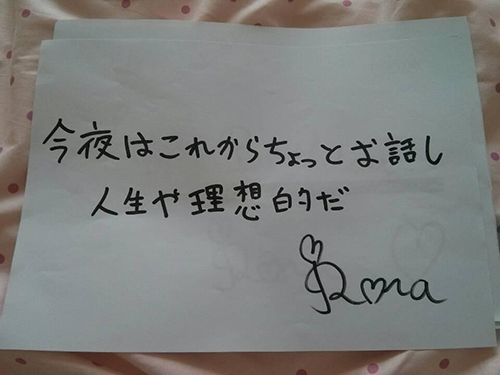 今夜はこれからちょっとお話し
人生や理想的だ
Rona